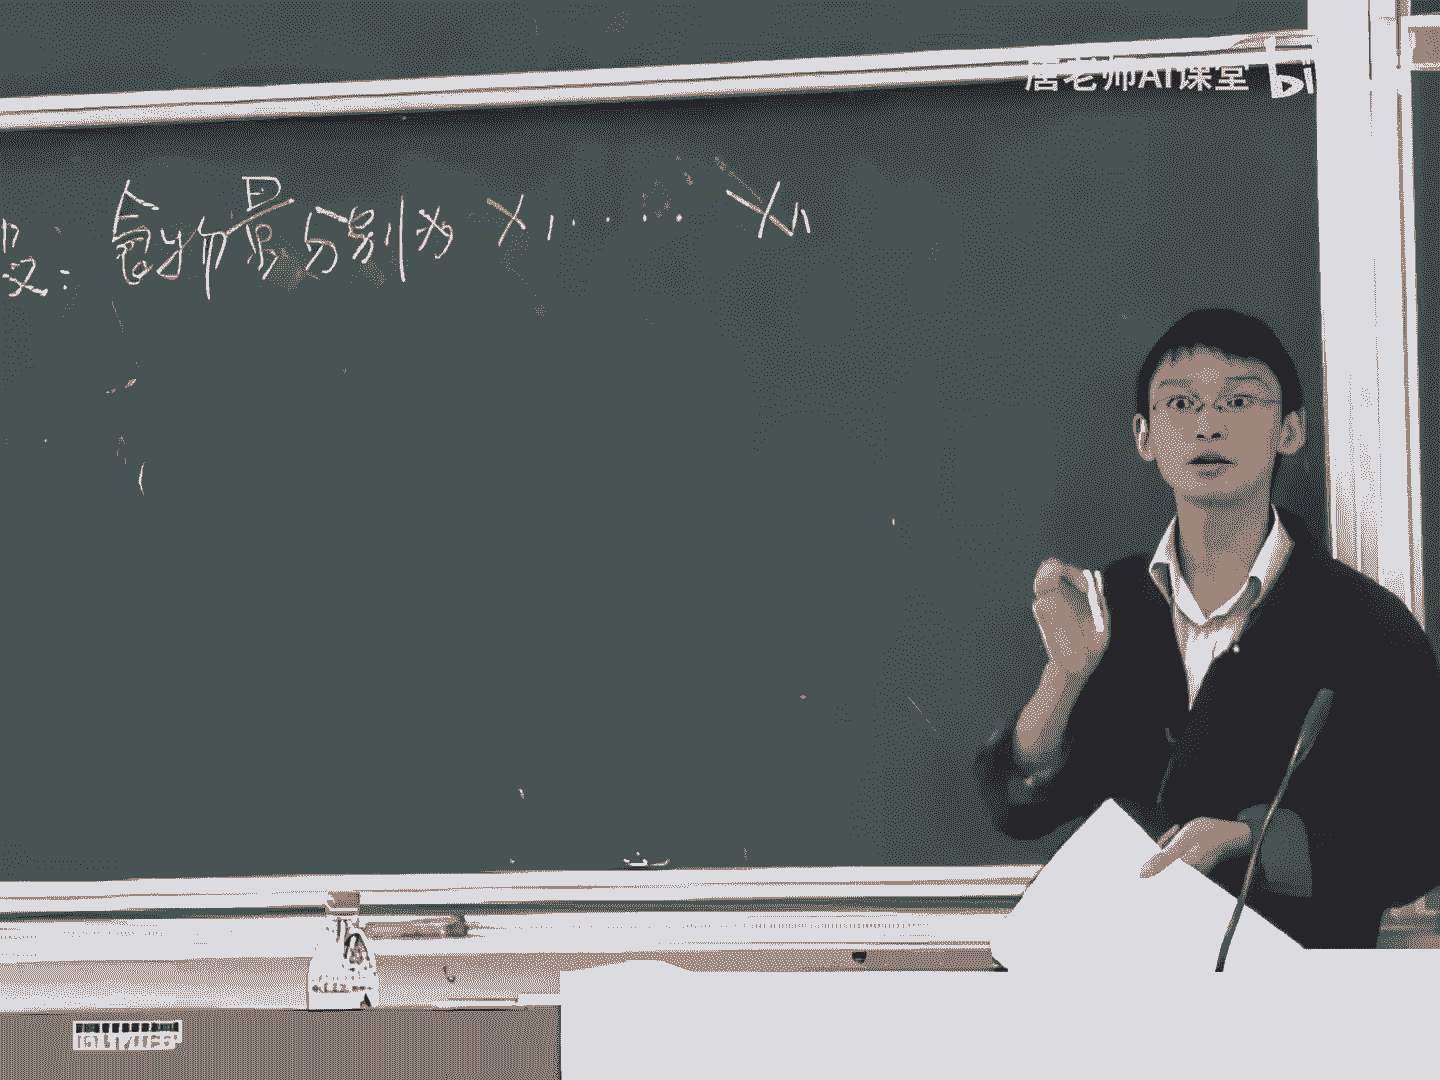 唐老师AI课堂 bi
设: 食物量分别为 X1...... Xn